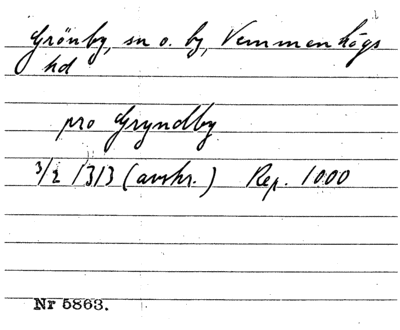 Grönby, sn o. by, Vemmenhögs
hd
pro Gryndby
3/2 1313 (avskr.) Rep. 1000
Nr 5863.